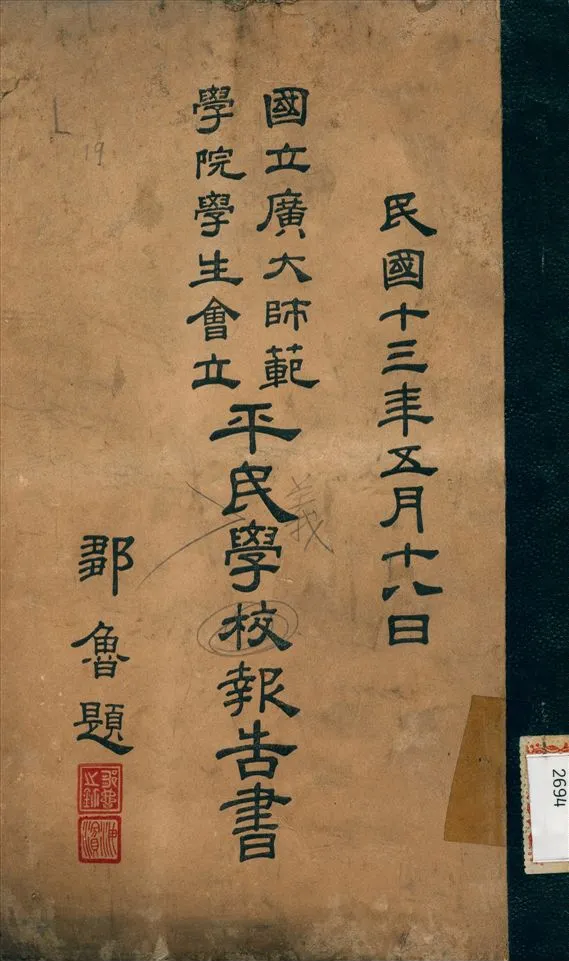 民國十三年五月十八日
國立廣大師範
學院學生會立
平民學校報告書
鄒魯題
鄒魯之鈢
海濱
義
L
19
2694